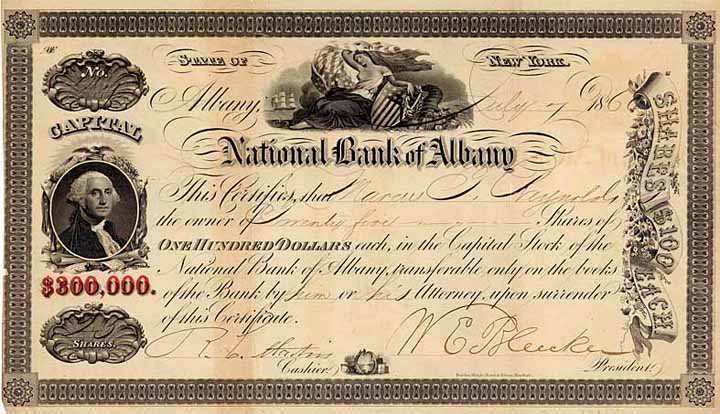 No.
STATE OF NEW YORK.
Albany, July 7 186
CAPITAL
National Bank of Albany
This Certifies, that Marcus T. Reynolds
the owner of Twenty five Shares of
ONE HUNDRED DOLLARS each, in the Capital Stock of the
National Bank of Albany, transferable only on the books
$300,000.
of the Bank by him or his Attorney, upon surrender
of this Certificate.
SHARES.
W E Bleecker
Cashier. President.
SHARES $100 EACH